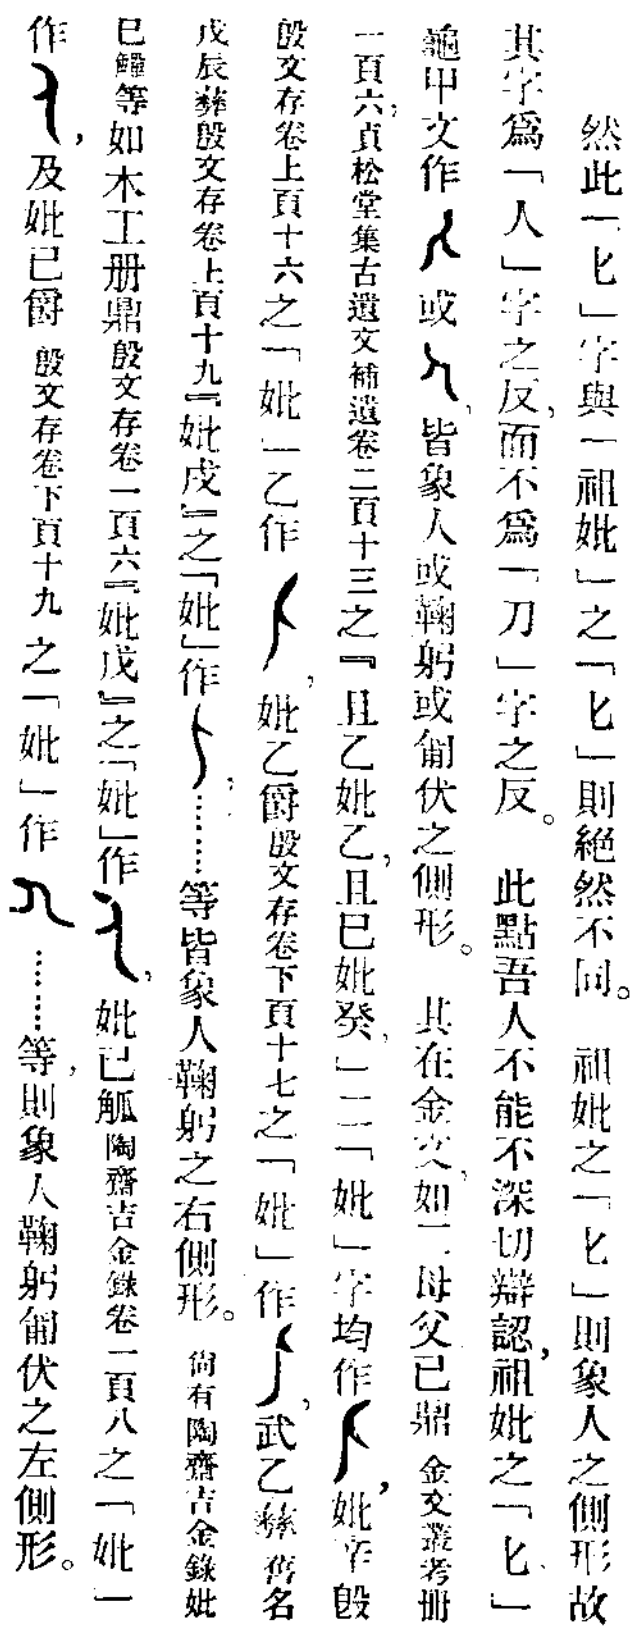 然此「匕」字與「祖妣」之「匕」則絕然不同。祖妣之「匕」則象人之側形故
其字爲「人」字之反，而不爲「刀」字之反。此點吾人不能不深切辯認，祖妣之「匕」
龜甲文作 或 ，皆象人或鞠躬或匍伏之側形。其在金文，如二母父已鼎 金文叢考冊
一頁六，貞松堂集古遺文補遺卷二頁十三之『且乙妣乙，且已妣癸，」二「妣」字均作 ，妣辛𣪘
殷文存卷上頁十六之「妣」乙作 ，妣乙爵殷文存卷下頁十七之「妣」作 ，武乙彝 舊名
戊辰彝殷文存卷上頁十九『妣戊』之「妣」作 ，……等皆象人鞠躬之右側形。尙有陶齋吉金錄妣
已觶等如木工册鼎殷文存卷一頁六『妣戊』之「妣」作 ，妣已觚陶齋吉金錄卷二頁八之「妣」
作 ，及妣已爵 殷文存卷下頁十九 之「妣」作 ……等，則象人鞠躬匍伏之左側形。